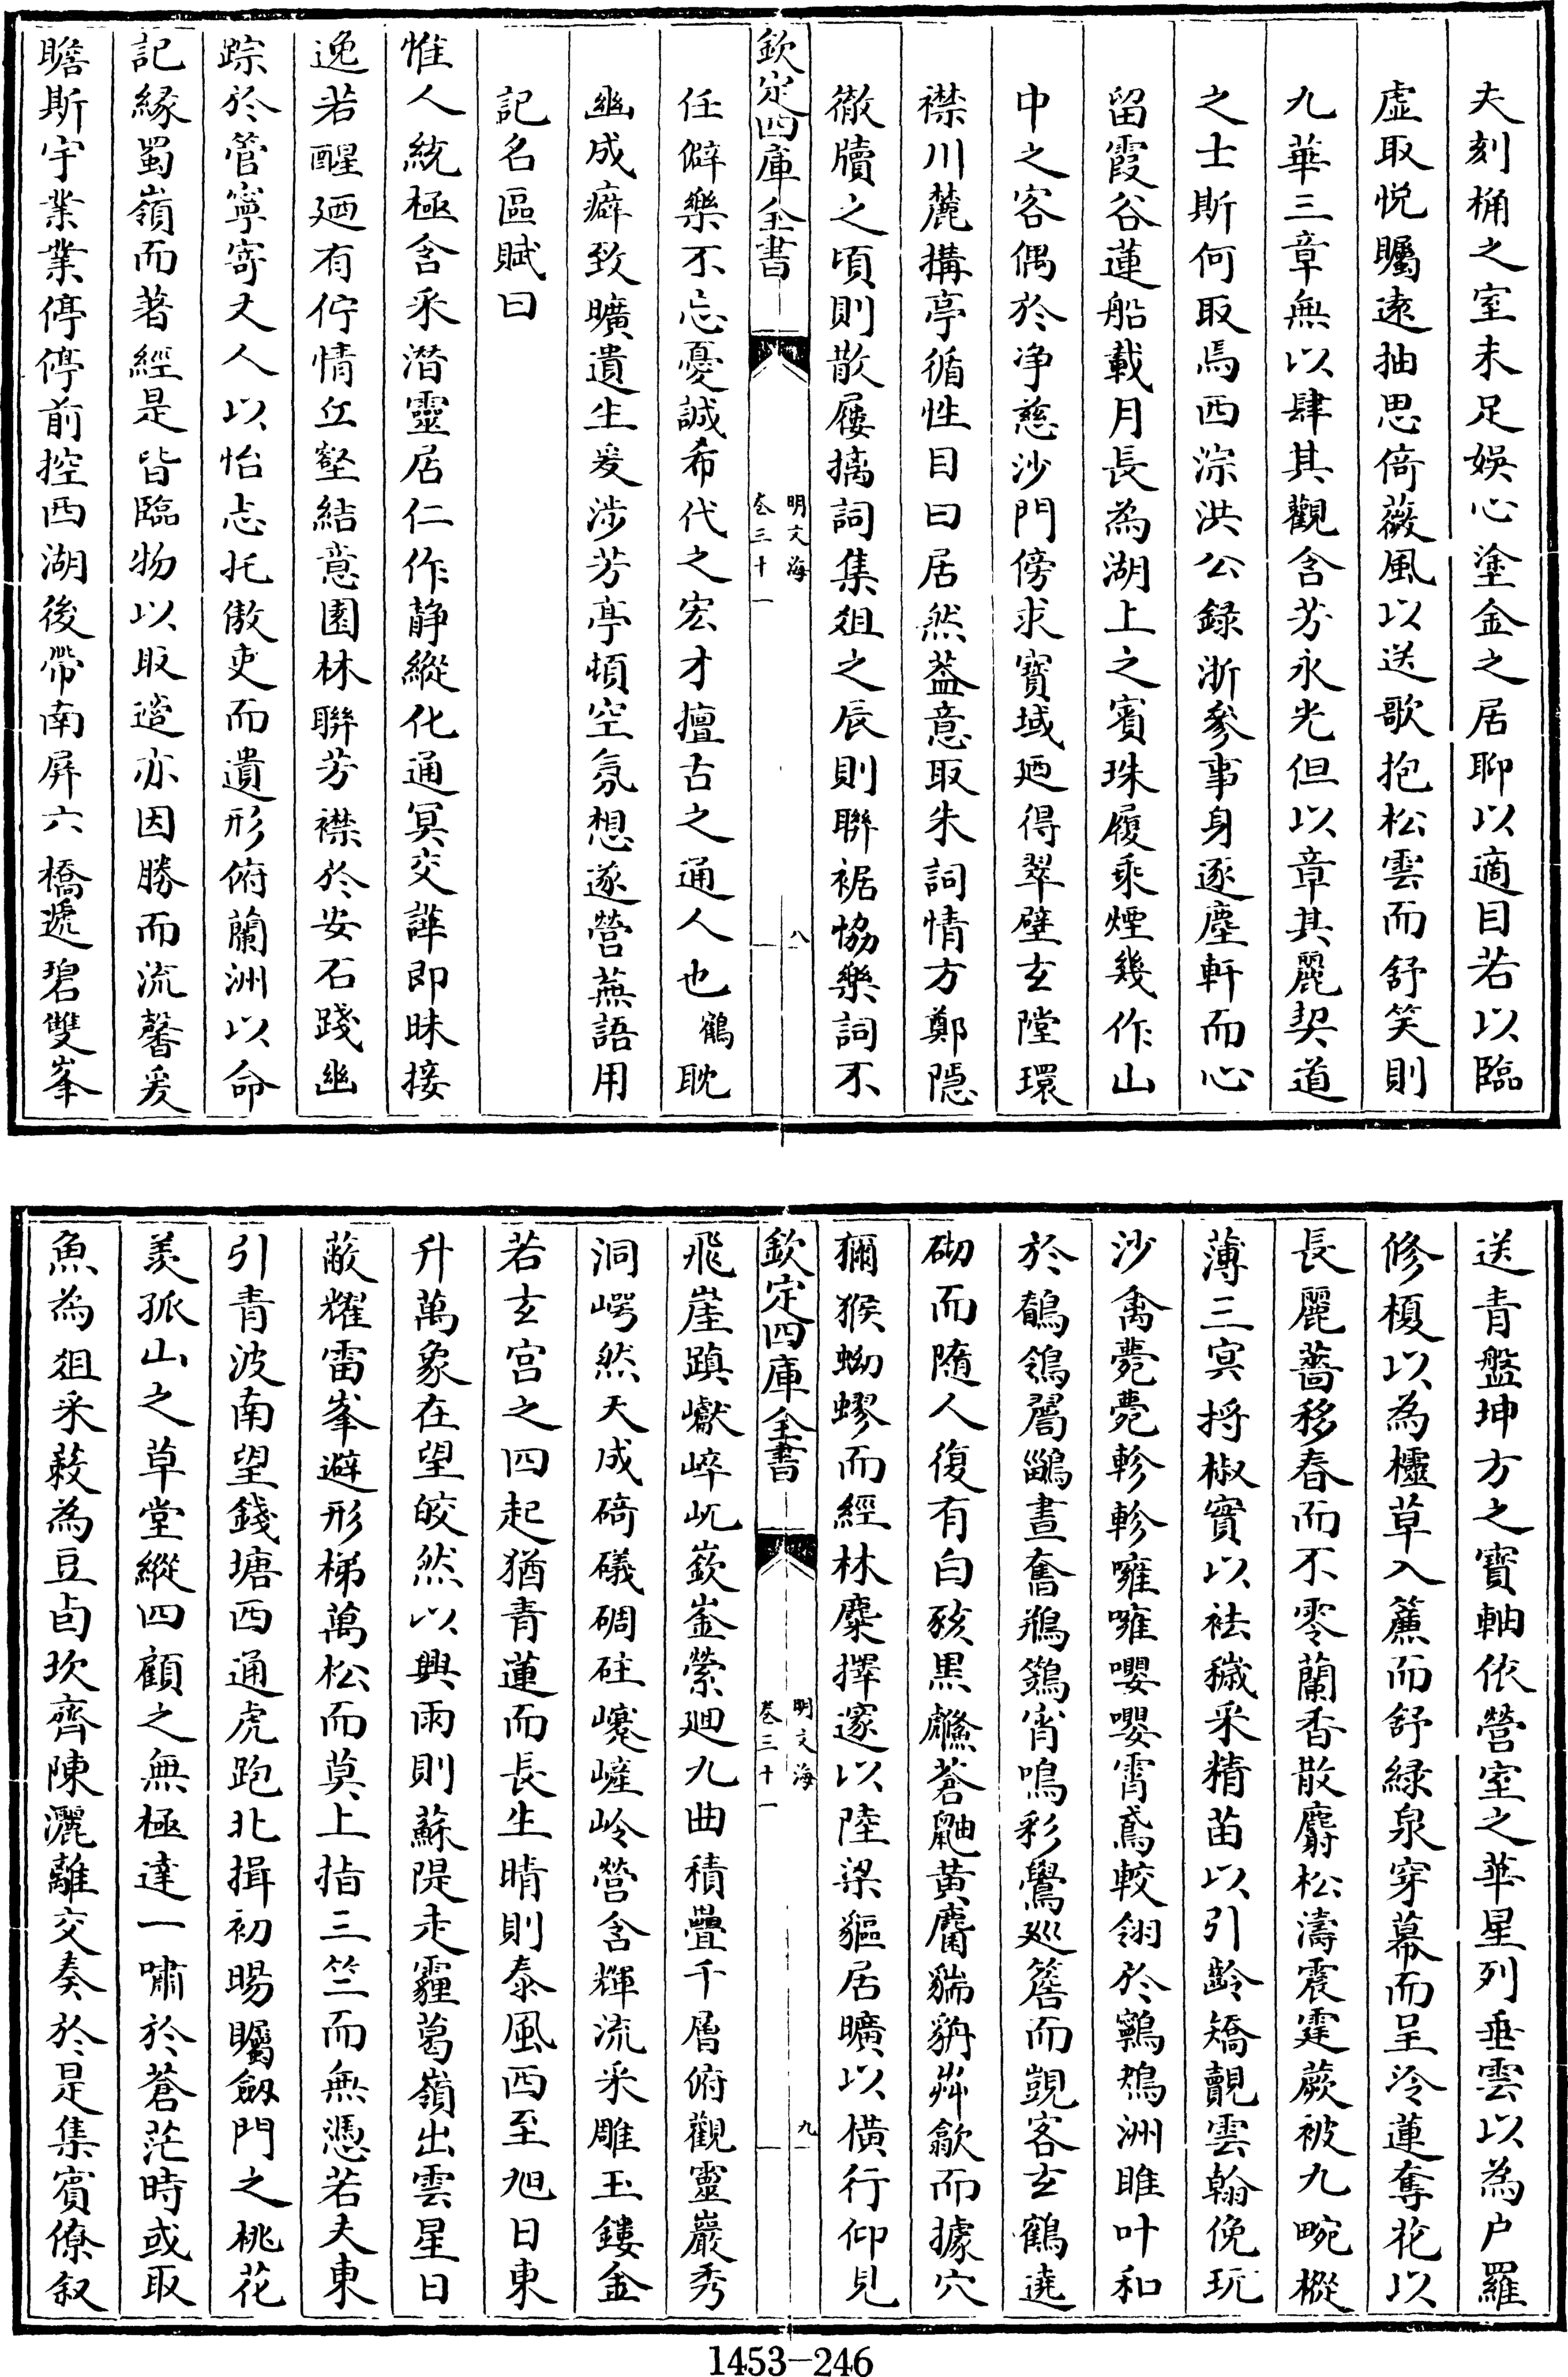 夫刻桷之室未足娛心塗金之居聊以適目若以臨
虛取悅矚遠抽思倚薇風以送歌抱松雲而舒笑則
九華三章無以肆其觀含芳永光但以章其麗契道
之士斯何取焉西淙洪公錄浙參事身逐塵軒而心
留霞谷蓮船載月長為湖上之賓珠履乘煙幾作山
中之客偶於净慈沙門傍求寶域廼得翠壁玄隍環
襟川麓搆亭循性目曰居然葢意取朱詞情方鄭隱
徹牘之頃則散屨摛詞集俎之辰則聯裾協樂詞不
欽定四庫全書
明文海
卷三十一
八
任僻樂不忘憂誠希代之宏才擅古之通人也鶴耽
幽成癖致曠遺生爰涉芳亭頓空氛想遂營蕪語用
記名區賦曰
惟人統極含采潛靈居仁作靜縱化通冥交譁即昧接
逸若醒廼有佇情丘壑結意園林聯芳襟於安石踐幽
踪於管寧寄丈人以怡志托傲吏而遺形俯蘭洲以命
記緣蜀嶺而著經是皆臨物以取遊亦因勝而流馨爰
瞻斯宇業業停停前控西湖後帶南屏六橋遞碧雙峯
送青盤坤方之寶軸依營室之華星列垂雲以為户羅
修榎以為櫺草入簾而舒綠泉穿幕而呈冷蓮奪花以
長麗薔移春而不零蘭香散麝松濤震霆蕨被九畹樅
薄三冥捋椒實以袪穢采精苗以引齡矯覿雲翰俛玩
沙禽薨薨軫軫嗈嗈嚶嚶霄鳶較翎於鸘鵠洲雎叶和
於鶺鴒鶻鶅晝奮鵵鷄宵鳴彩鸞廵簷而覬客玄鶴遶
砌而隨人復有白豥黑䲔蒼鼬黃麕貒貈犇歙而據穴
獼猴蚴蟉而經林麋擇邃以陸梁貙居曠以橫行仰見
欽定四庫全書
明文海
卷三十一
九
飛崖蹎巘崪屼嶔崟縈廻九曲積疊千層俯觀靈巖秀
洞崿然天成碕礒碉砫巉嵼岭營含輝流采雕玉鏤金
若玄宫之四起猶青蓮而長生晴則泰風西至旭日東
升萬象在望皎然以興雨則蘇隄走霾葛嶺出雲星日
蔽耀雷峯避形梯萬松而莫上指三竺而無憑若夫東
引青波南望錢塘西通虎跑北揖初暘矚劔門之桃花
羨孤山之草堂縱四顧之無極達一嘯於蒼茫時或取
魚為俎采蔌為豆卣坎齊陳灑離交奏於是集賓僚叙
1453-246